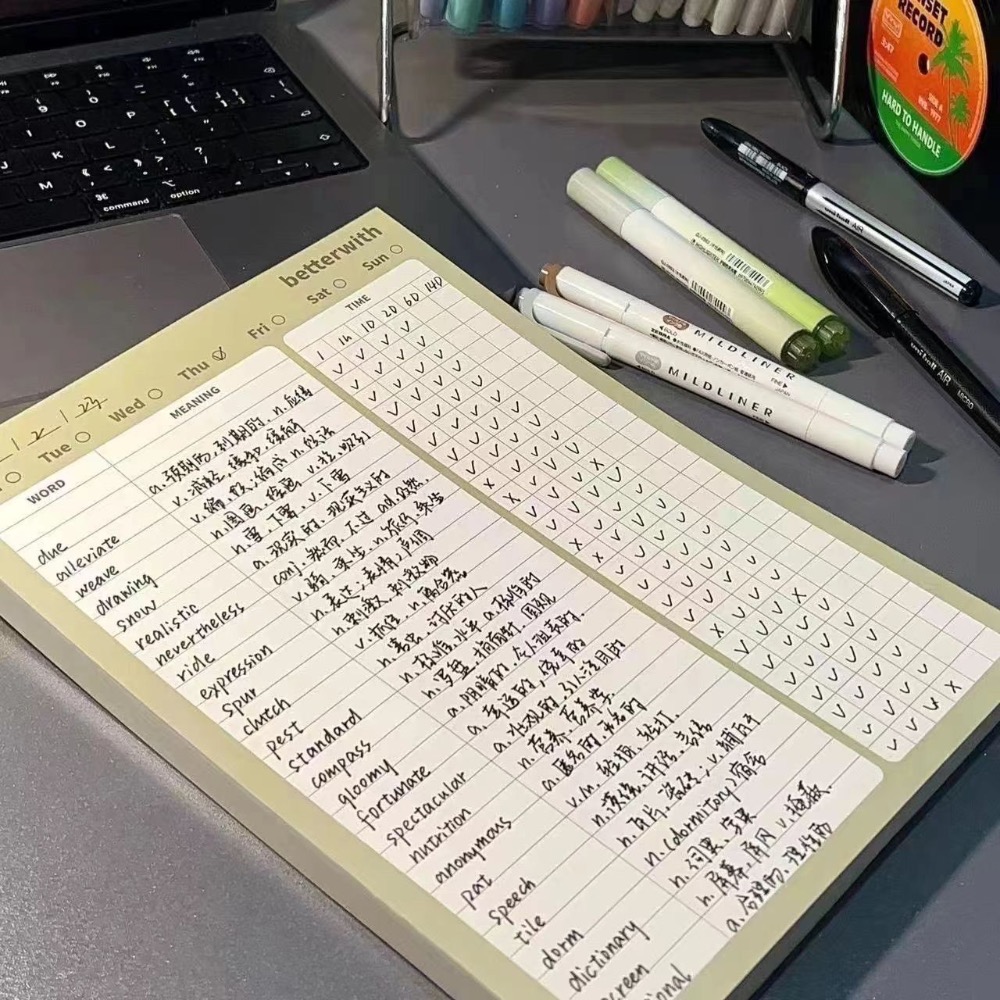 betterwith
Tue Wed Thu Fri Sat Sun
WORD MEANING TIME
1 1h 1D 2D 6D 14D
due a. 预期的, 到期的 n. 应得
alleviate v. 减轻, 缓和, 缓解
weave v. 编, 织, 编成 n. 织法
drawing n. 图画, 绘画 v. 拉, 吸引
snow n. 雪, 下雪 v. 下雪
realistic a. 现实的, 现实主义的
nevertheless conj. 然而, 不过 ad. 仍然
ride v. 骑, 乘坐 n. 旅行, 乘坐
expression n. 表达, 表情, 声调
spur n. 刺激, 刺激物
clutch v. 抓住 n. 离合器
pest n. 害虫, 讨厌的人
standard n. 标准, 水平 a. 标准的
compass n. 罗盘, 指南针, 圆规
gloomy a. 阴暗的, 令人沮丧的
fortunate a. 幸运的, 侥幸的
spectacular a. 壮观的, 引人注目的
nutrition n. 营养, 营养学
anonymous a. 匿名的, 无名的
pat v./n. 轻拍, 轻打
speech n. 演说, 讲话, 言语
tile n. 瓦片, 瓷砖, v. 铺瓦于
dorm n. (dormitory) 宿舍
dictionary n. 词典, 字典
screen n. 屏幕, 屏风 v. 掩蔽
a. 合理的, 理性的
command option
MILDLINER
MILDLINER
ZEBRA
uni-ball AIR
uni-ball AIR MICRO
RECORD
HARD TO HANDLE